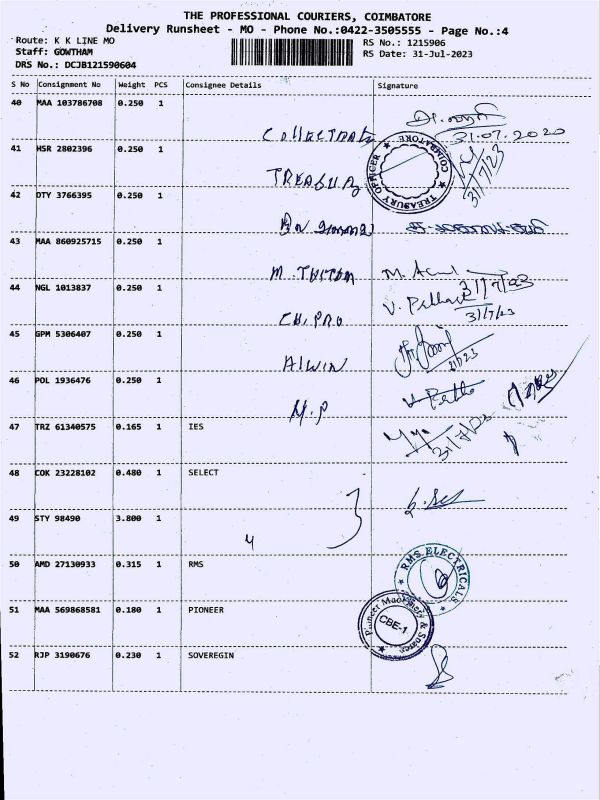 THE PROFESSIONAL COURIERS, COIMBATORE
Delivery Runsheet - MO - Phone No.:0422-3505555 - Page No.:4
Route: K K LINE MO
RS No.: 1215906
Staff: GOWTHAM
RS Date: 31-Jul-2023
DRS No.: DCJB121590604
S No Consignment No Weight PCS Consignee Details Signature
40 MAA 103786708 0.250 1
31.07.2020
41 HSR 2802396 0.250 1
TREASURY OFFICER COIMBATORE
31/7/23
42 DTY 3766395 0.250 1
43 MAA 860925715 0.250 1
M.
31/7/23
44 NGL 1013837 0.250 1
V.
31/7/23
CH.PRO
45 GPM 5306407 0.250 1
ALWIN
46 POL 1936476 0.250 1
M.P
47 TRZ 61340575 0.165 1 IES
48 COK 23228102 0.480 1 SELECT
49 STY 98490 3.800 1
4
50 AMD 27130933 0.315 1 RMS
RMS ELECTRICALS
51 MAA 569868581 0.180 1 PIONEER
Pioneer Machinery & Spares
CBE-1
52 RJP 3190676 0.230 1 SOVEREGIN